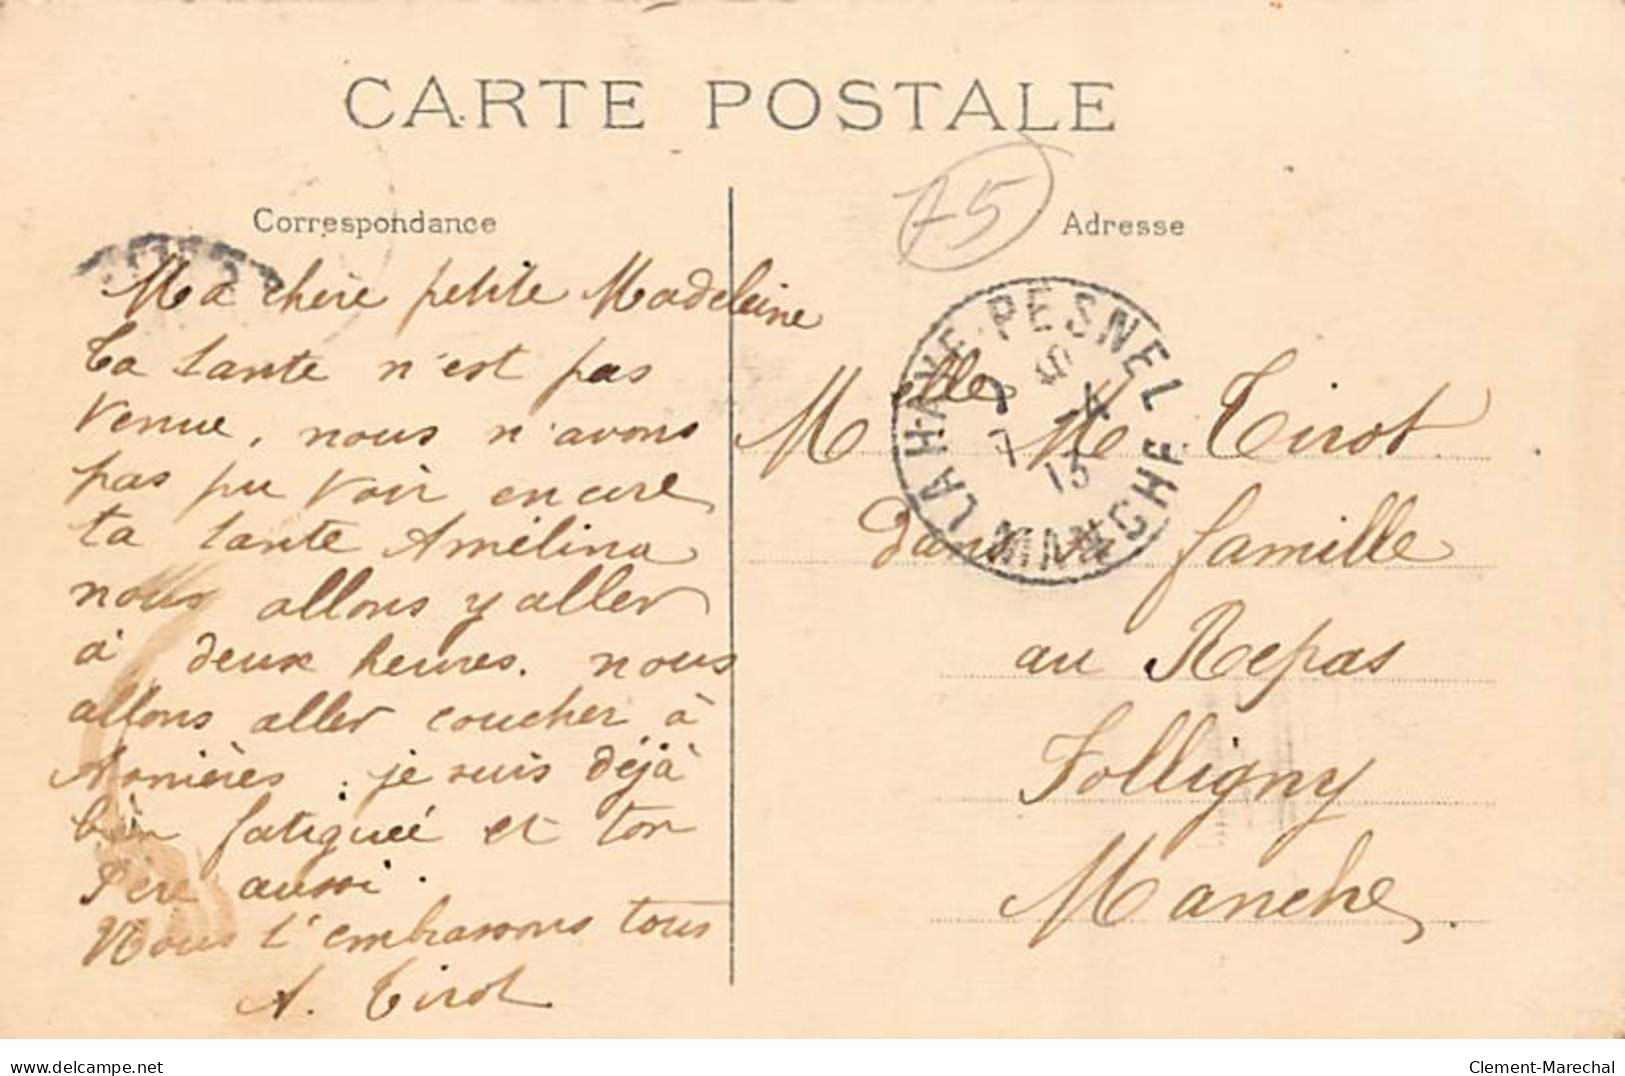 CARTE POSTALE
75
Correspondance
Adresse
Ma chère petite Madeleine
Ta tante n'est pas
venue, nous n'avons
pas pu voir encore
ta tante Amélina
nous allons y aller
à deux heures. nous
allons aller coucher à
Asnières. je suis déjà
bien fatiguée et ton
Père aussi.
Nous t'embrassons tous
A. Tirot
LA HAYE-PESNEL
7 -4
13
MANCHE
Melle M Tirot
dans sa famille
au Repas
Folligny
Manche.
delcampe.net
Clement-Marechal